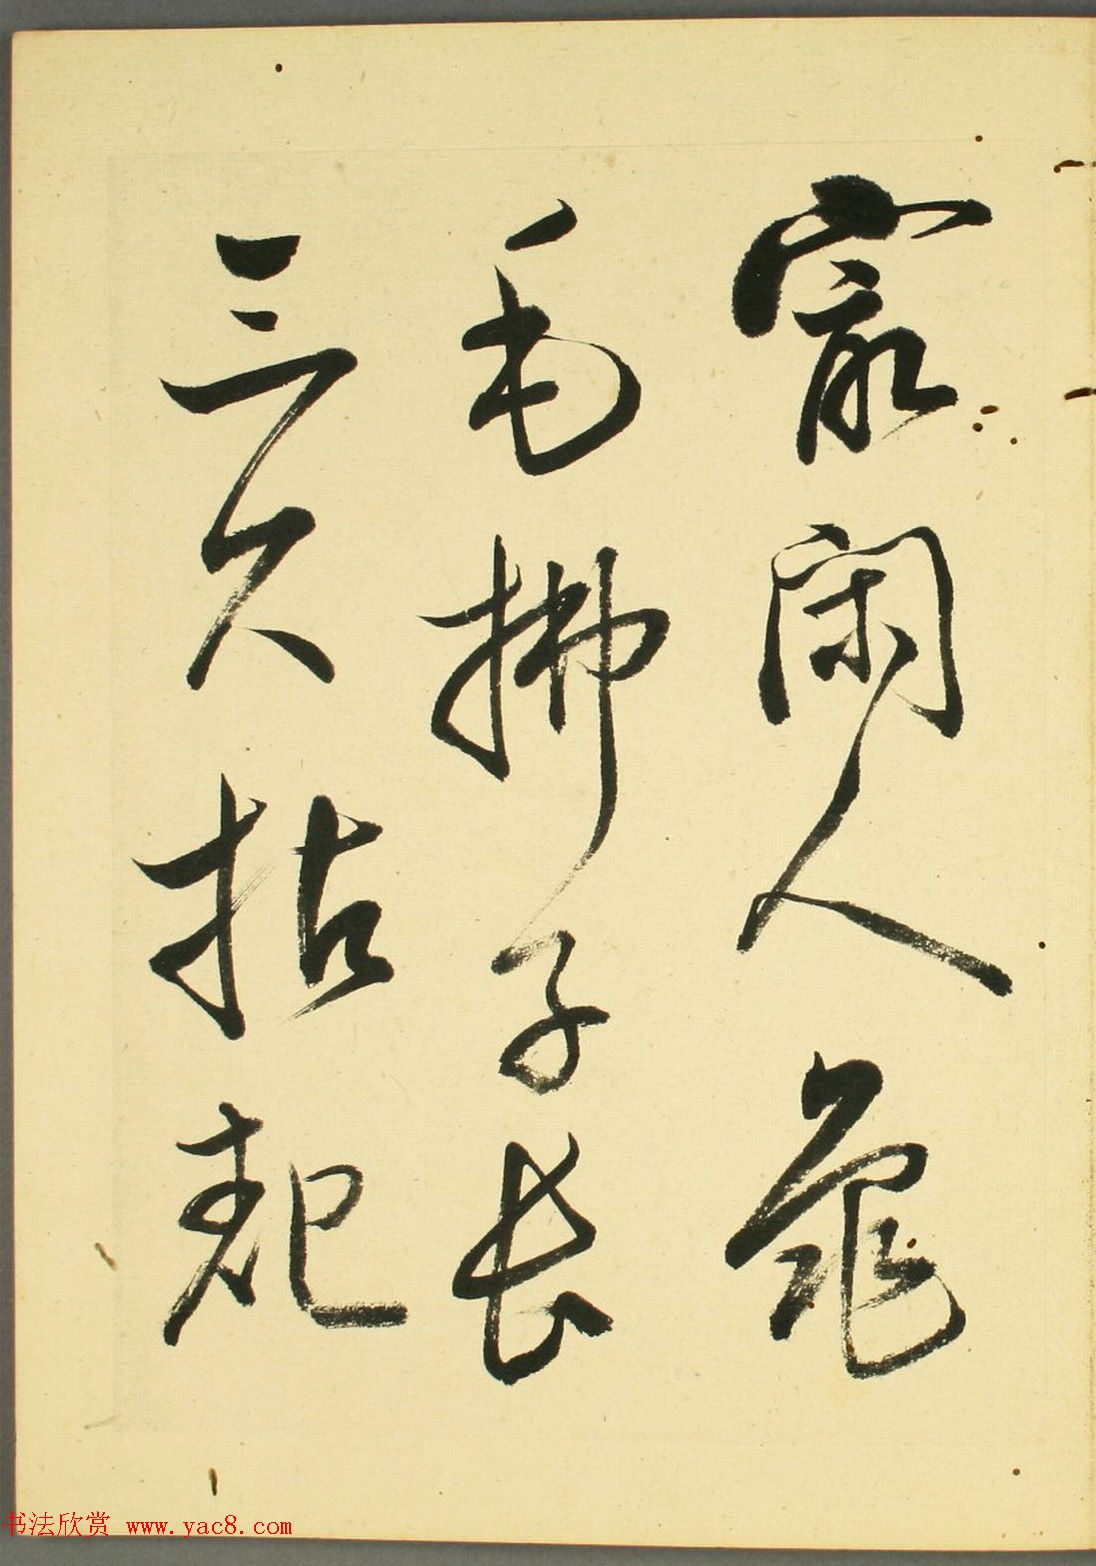 寂闲人龟
毛拂子长
三尺拈起
书法欣赏 www.yac8.com